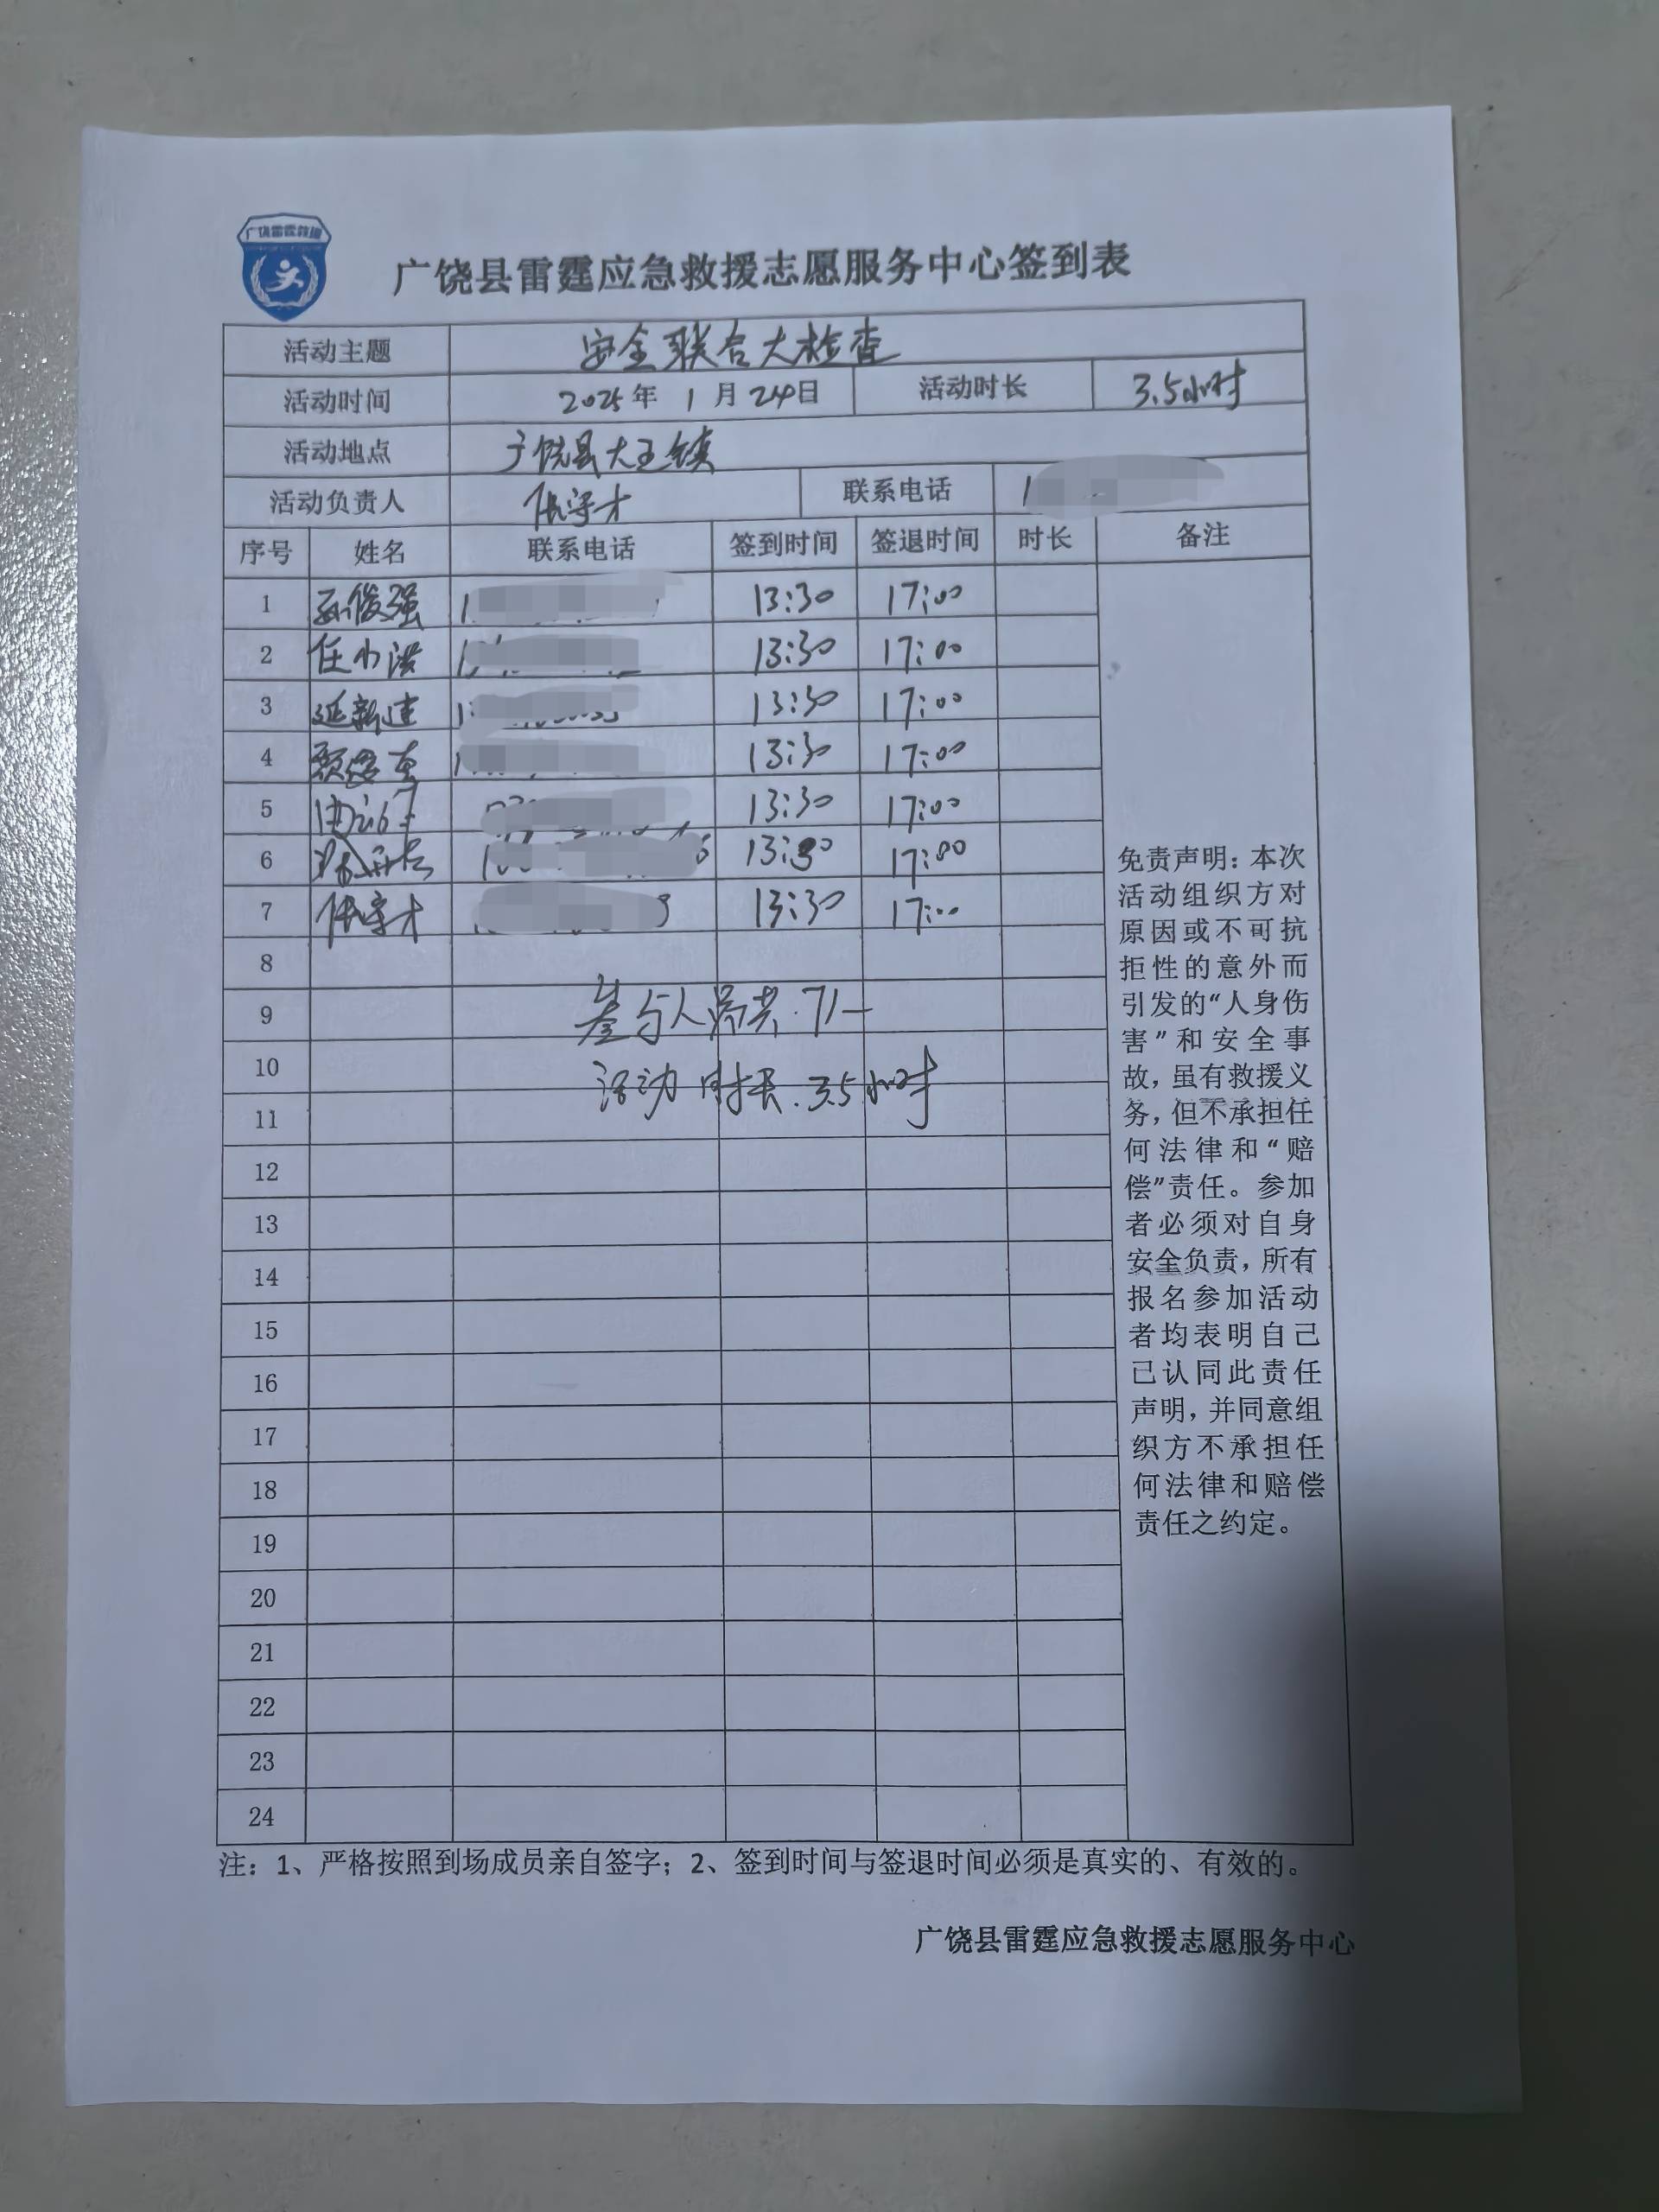 广饶雷霆救援
广饶县雷霆应急救援志愿服务中心签到表
活动主题 安全联合大检查
活动时间 2025年 1月24日 活动时长 3.5小时
活动地点 广饶县大王镇
活动负责人 联系电话 1
序号 姓名 联系电话 签到时间 签退时间 时长 备注
1 孙俊强 1 13:30 17:00
2 任小洪 1 13:30 17:00
3 延新建 1 13:30 17:00
4 1 13:30 17:00
5 13:30 17:00
6 13:30 17:00
7 13:30 17:00
8
9 参与人员共.7人
10
活动时长.3.5小时
11
12
13
14
15
16
17
18
19
20
21
22
23
24
免责声明：本次
活动组织方对
原因或不可抗
拒性的意外而
引发的“人身伤
害”和安全事
故，虽有救援义
务，但不承担任
何法律和“赔
偿”责任。参加
者必须对自身
安全负责，所有
报名参加活动
者均表明自己
已认同此责任
声明，并同意组
织方不承担任
何法律和赔偿
责任之约定。
注：1、严格按照到场成员亲自签字；2、签到时间与签退时间必须是真实的、有效的。
广饶县雷霆应急救援志愿服务中心